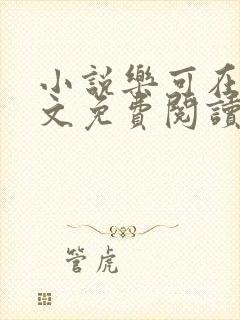 小說樂可在
文免費閱讀
管虎